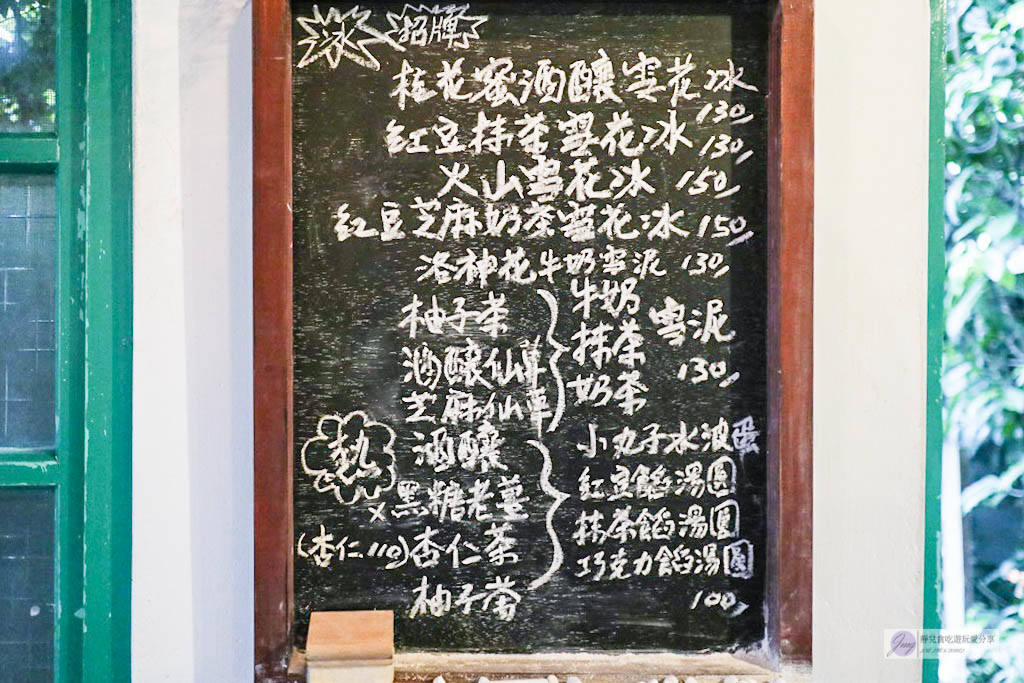 冰 招牌
桂花蜜酒釀雪花冰
130
紅豆抹茶雪花冰 130
火山雪花冰 150
紅豆芝麻奶茶雪花冰 150
洛神花牛奶雪泥 130
柚子茶
酒釀仙草
芝麻仙草
牛奶
抹茶
奶茶
雪泥
130
熱
酒釀
×黑糖老薑
(杏仁110)杏仁茶
柚子茶
小丸子水波蛋
紅豆餡湯圓
抹茶餡湯圓
巧克力餡湯圓
100
靜兒貪吃遊玩愛分享